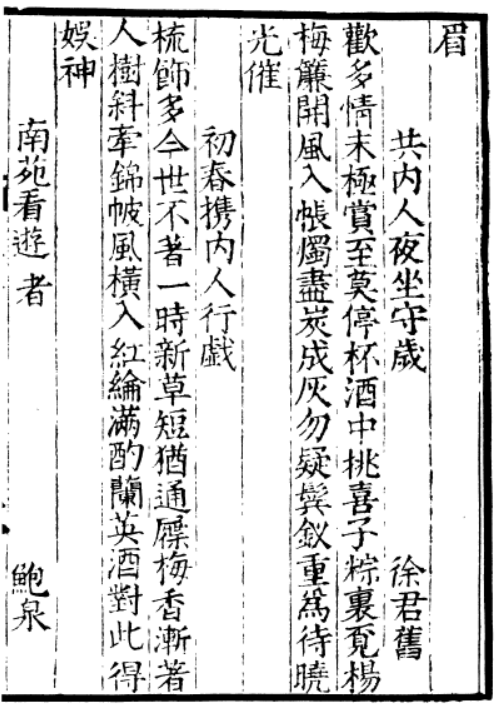 眉
共内人夜坐守歲　徐君舊
歡多情未極賞至莫停杯酒中挑喜子粽裏覓楊
梅簾開風入帳燭盡炭成灰勿疑鬂釵重爲待曉
光催
初春携内人行戲
梳飾多今世不著一時新草短猶通屧梅香漸著
人樹斜牽錦帔風橫入紅綸滿酌蘭英酒對此得
娛神
南苑看遊者　鮑泉